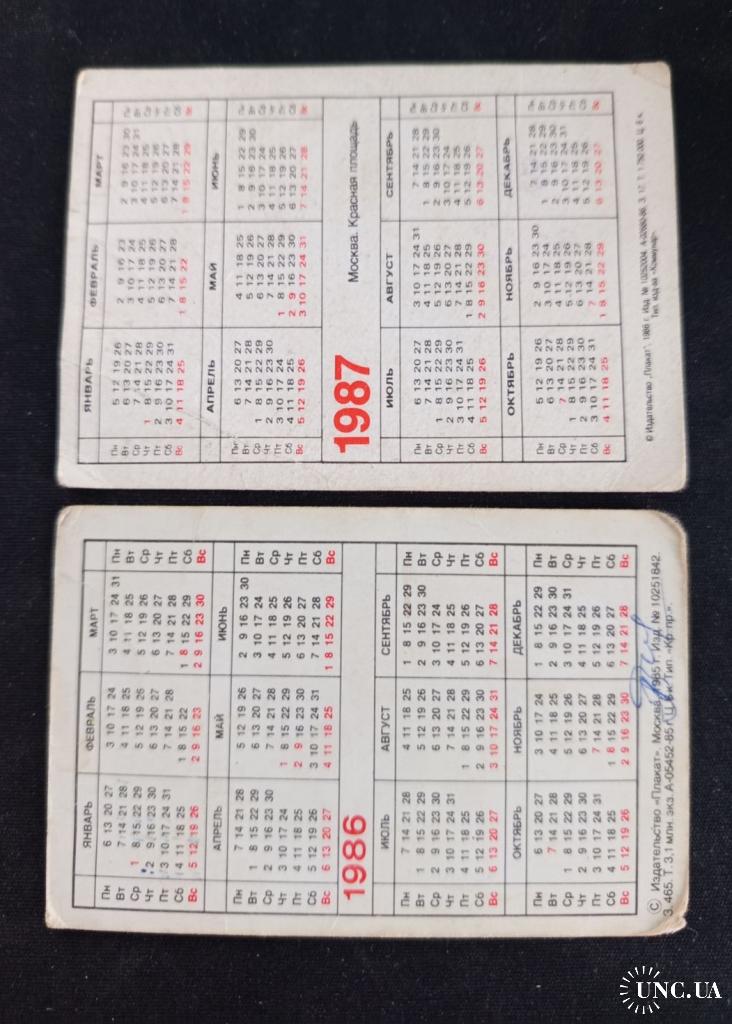 ЯНВАРЬ ФЕВРАЛЬ МАРТ
Пн 6 13 20 27 3 10 17 24 3 10 17 24 31 Пн
Вт 7 14 21 28 4 11 18 25 4 11 18 25 Вт
Ср 1 8 15 22 29 5 12 19 26 5 12 19 26 Ср
Чт 2 9 16 23 30 6 13 20 27 6 13 20 27 Чт
Пт 3 10 17 24 31 7 14 21 28 7 14 21 28 Пт
Сб 4 11 18 25 1 8 15 22 1 8 15 22 29 Сб
Вс 5 12 19 26 2 9 16 23 2 9 16 23 30 Вс
АПРЕЛЬ МАЙ ИЮНЬ
Пн 7 14 21 28 5 12 19 26 2 9 16 23 30 Пн
Вт 1 8 15 22 29 6 13 20 27 3 10 17 24 Вт
Ср 2 9 16 23 30 7 14 21 28 4 11 18 25 Ср
Чт 3 10 17 24 1 8 15 22 29 5 12 19 26 Чт
Пт 4 11 18 25 2 9 16 23 30 6 13 20 27 Пт
Сб 5 12 19 26 3 10 17 24 31 7 14 21 28 Сб
Вс 6 13 20 27 4 11 18 25 1 8 15 22 29 Вс
1986
ИЮЛЬ АВГУСТ СЕНТЯБРЬ
Пн 7 14 21 28 4 11 18 25 1 8 15 22 29 Пн
Вт 1 8 15 22 29 5 12 19 26 2 9 16 23 30 Вт
Ср 2 9 16 23 30 6 13 20 27 3 10 17 24 Ср
Чт 3 10 17 24 31 7 14 21 28 4 11 18 25 Чт
Пт 4 11 18 25 1 8 15 22 29 5 12 19 26 Пт
Сб 5 12 19 26 2 9 16 23 30 6 13 20 27 Сб
Вс 6 13 20 27 3 10 17 24 31 7 14 21 28 Вс
ОКТЯБРЬ НОЯБРЬ ДЕКАБРЬ
Пн 6 13 20 27 3 10 17 24 1 8 15 22 29 Пн
Вт 7 14 21 28 4 11 18 25 2 9 16 23 30 Вт
Ср 1 8 15 22 29 5 12 19 26 3 10 17 24 31 Ср
Чт 2 9 16 23 30 6 13 20 27 4 11 18 25 Чт
Пт 3 10 17 24 31 7 14 21 28 5 12 19 26 Пт
Сб 4 11 18 25 1 8 15 22 29 6 13 20 27 Сб
Вс 5 12 19 26 2 9 16 23 30 7 14 21 28 Вс
© Издательство «Плакат». Москва. 1985 г. Изд. № 10251842.
З. 465. Т. 3,1 млн. экз. А-05452-85 г. Тип. «Кр пр».
ЯНВАРЬ ФЕВРАЛЬ МАРТ
Пн 5 12 19 26 2 9 16 23 2 9 16 23 30 Пн
Вт 6 13 20 27 3 10 17 24 3 10 17 24 31 Вт
Ср 7 14 21 28 4 11 18 25 4 11 18 25 Ср
Чт 1 8 15 22 29 5 12 19 26 5 12 19 26 Чт
Пт 2 9 16 23 30 6 13 20 27 6 13 20 27 Пт
Сб 3 10 17 24 31 7 14 21 28 7 14 21 28 Сб
Вс 4 11 18 25 1 8 15 22 1 8 15 22 29 Вс
АПРЕЛЬ МАЙ ИЮНЬ
Пн 6 13 20 27 4 11 18 25 1 8 15 22 29 Пн
Вт 7 14 21 28 5 12 19 26 2 9 16 23 30 Вт
Ср 1 8 15 22 29 6 13 20 27 3 10 17 24 Ср
Чт 2 9 16 23 30 7 14 21 28 4 11 18 25 Чт
Пт 3 10 17 24 1 8 15 22 29 5 12 19 26 Пт
Сб 4 11 18 25 2 9 16 23 30 6 13 20 27 Сб
Вс 5 12 19 26 3 10 17 24 31 7 14 21 28 Вс
1987 Москва. Красная площадь
ИЮЛЬ АВГУСТ СЕНТЯБРЬ
Пн 6 13 20 27 3 10 17 24 31 7 14 21 28 Пн
Вт 7 14 21 28 4 11 18 25 1 8 15 22 29 Вт
Ср 1 8 15 22 29 5 12 19 26 2 9 16 23 30 Ср
Чт 2 9 16 23 30 6 13 20 27 3 10 17 24 Чт
Пт 3 10 17 24 31 7 14 21 28 4 11 18 25 Пт
Сб 4 11 18 25 1 8 15 22 29 5 12 19 26 Сб
Вс 5 12 19 26 2 9 16 23 30 6 13 20 27 Вс
ОКТЯБРЬ НОЯБРЬ ДЕКАБРЬ
Пн 5 12 19 26 2 9 16 23 30 7 14 21 28 Пн
Вт 6 13 20 27 3 10 17 24 1 8 15 22 29 Вт
Ср 7 14 21 28 4 11 18 25 2 9 16 23 30 Ср
Чт 1 8 15 22 29 5 12 19 26 3 10 17 24 31 Чт
Пт 2 9 16 23 30 6 13 20 27 4 11 18 25 Пт
Сб 3 10 17 24 31 7 14 21 28 5 12 19 26 Сб
Вс 4 11 18 25 1 8 15 22 29 6 13 20 27 Вс
© Издательство „Плакат", 1986 г. Изд. № 10252004. А-02680-86. З. 17. Т. 1 750 000. Ц. 6 к.
Тип. изд-ва «Коммунар».
UNC.UA